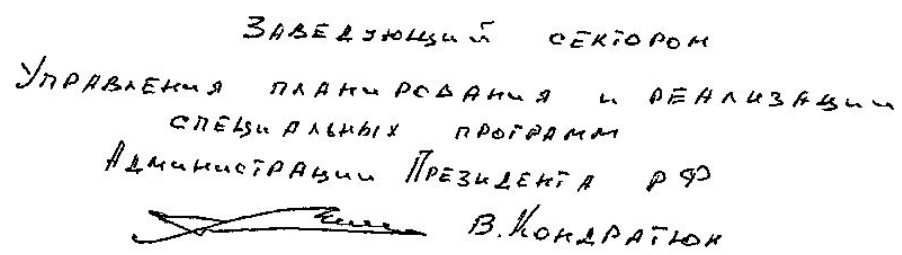 Заведующий сектором
Управления планирования и реализации
специальных программ
Администрации Президента РФ
В. Кондратюк